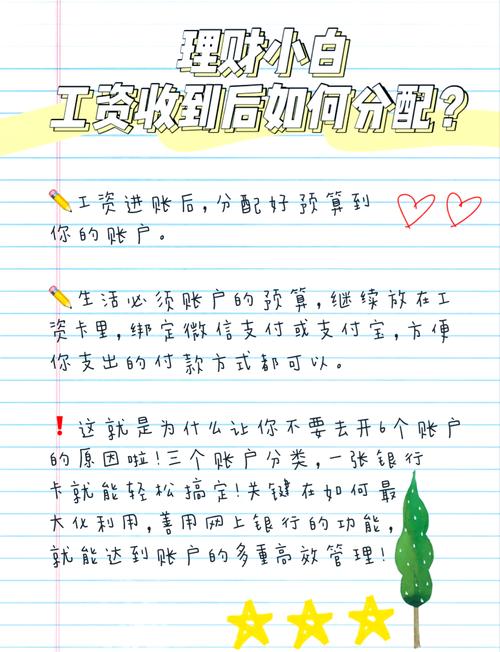 理财小白
工资收到后如何分配?
工资进账后,分配好预算到
你的账户。
生活必须账户的预算,继续放在工
资卡里,绑定微信支付或支付宝,方便
你支出的付款方式都可以。
这就是为什么让你不要去开6个账户
的原因啦!三个账户分类,一张银行
卡就能轻松搞定!关键在如何最
大化利用,善用网上银行的功能,
就能达到账户的多重高效管理!